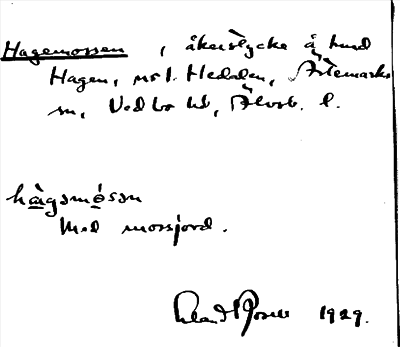 Hagemossen, åkerstycke å hmd
Hagen, nr 1. Hedalen, Ärtemarks
sn, Vedbo hd, Älvsb. l.
hàgəmósən
Med mossjord.
1929.